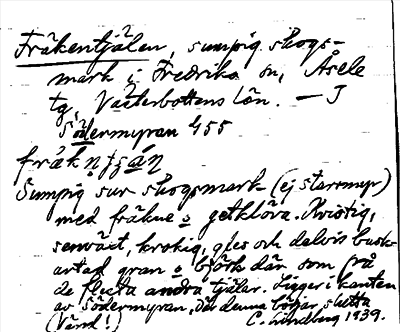 Fräkentjälen, sumpig skogs-
mark i Fredrika sn, Åsele
tg, Västerbottens län. — I
Södermyran 455
fräkn̥tʃä́n̥
Sumpig sur skogsmark (ej starrmyr)
med fräkne o getklöva. Kvistig,
senväxt, krokig, gles och delvis busk-
artad gran o björk där som på
de flesta andra tjälar. Ligger i kanten
av Södermyran, där denna börjar slutta
(Värd!) C. Lindberg 1939.